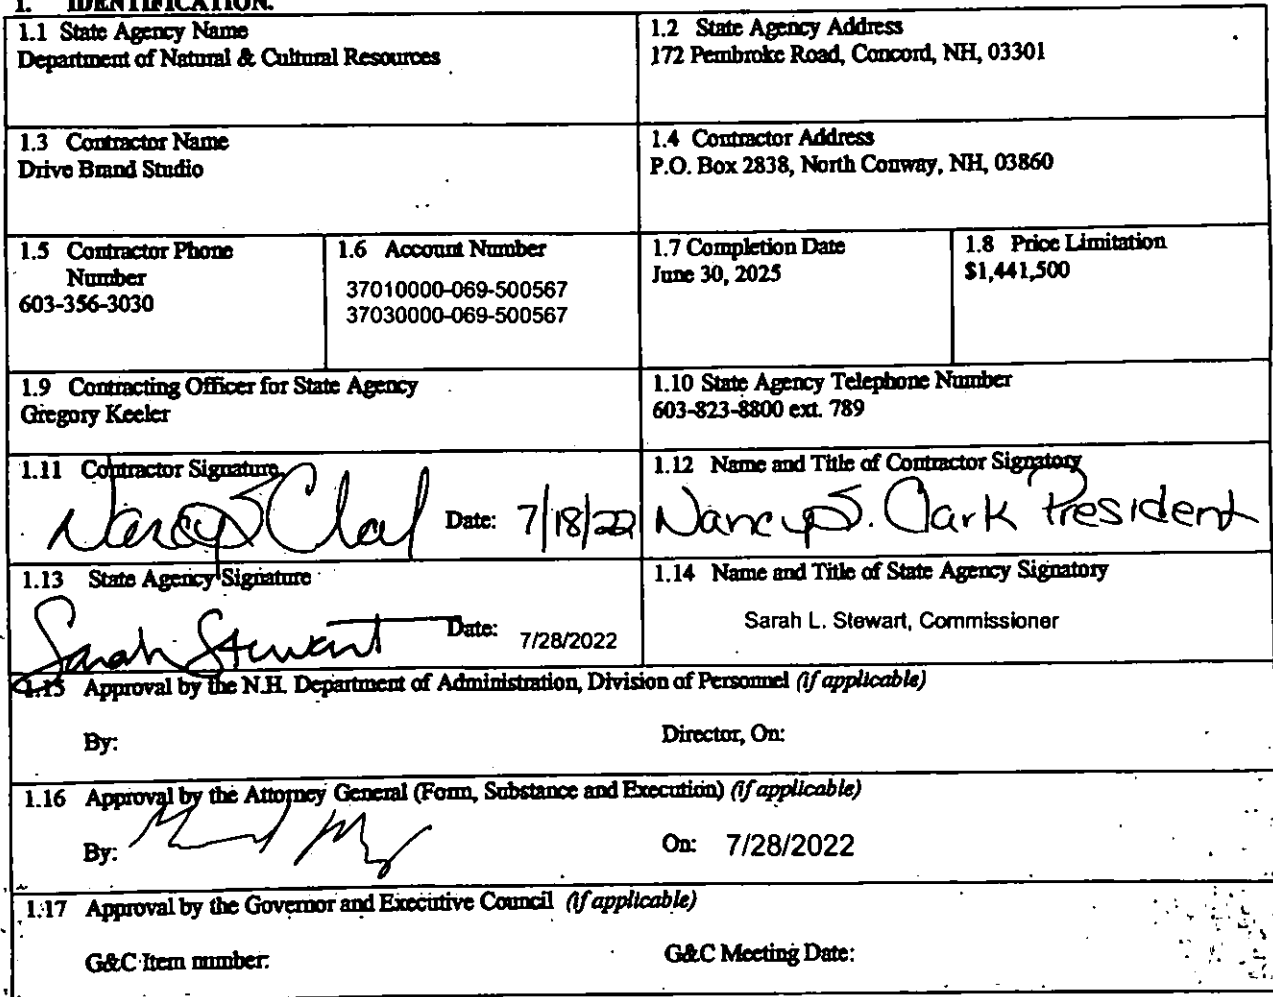 1. IDENTIFICATION.
1.1 State Agency Name
Department of Natural & Cultural Resources
1.2 State Agency Address
172 Pembroke Road, Concord, NH, 03301
1.3 Contractor Name
Drive Brand Studio
1.4 Contractor Address
P.O. Box 2838, North Conway, NH, 03860
1.5 Contractor Phone
Number
603-356-3030
1.6 Account Number
37010000-069-500567
37030000-069-500567
1.7 Completion Date
June 30, 2025
1.8 Price Limitation
$1,441,500
1.9 Contracting Officer for State Agency
Gregory Keeler
1.10 State Agency Telephone Number
603-823-8800 ext. 789
1.11 Contractor Signature
Nancy S Clark Date: 7/18/22
1.12 Name and Title of Contractor Signatory
Nancy S. Clark President
1.13 State Agency Signature
Sarah Stewart Date: 7/28/2022
1.14 Name and Title of State Agency Signatory
Sarah L. Stewart, Commissioner
1.15 Approval by the N.H. Department of Administration, Division of Personnel (if applicable)
By: Director, On:
1.16 Approval by the Attorney General (Form, Substance and Execution) (if applicable)
By: On: 7/28/2022
1.17 Approval by the Governor and Executive Council (if applicable)
G&C Item number: G&C Meeting Date: